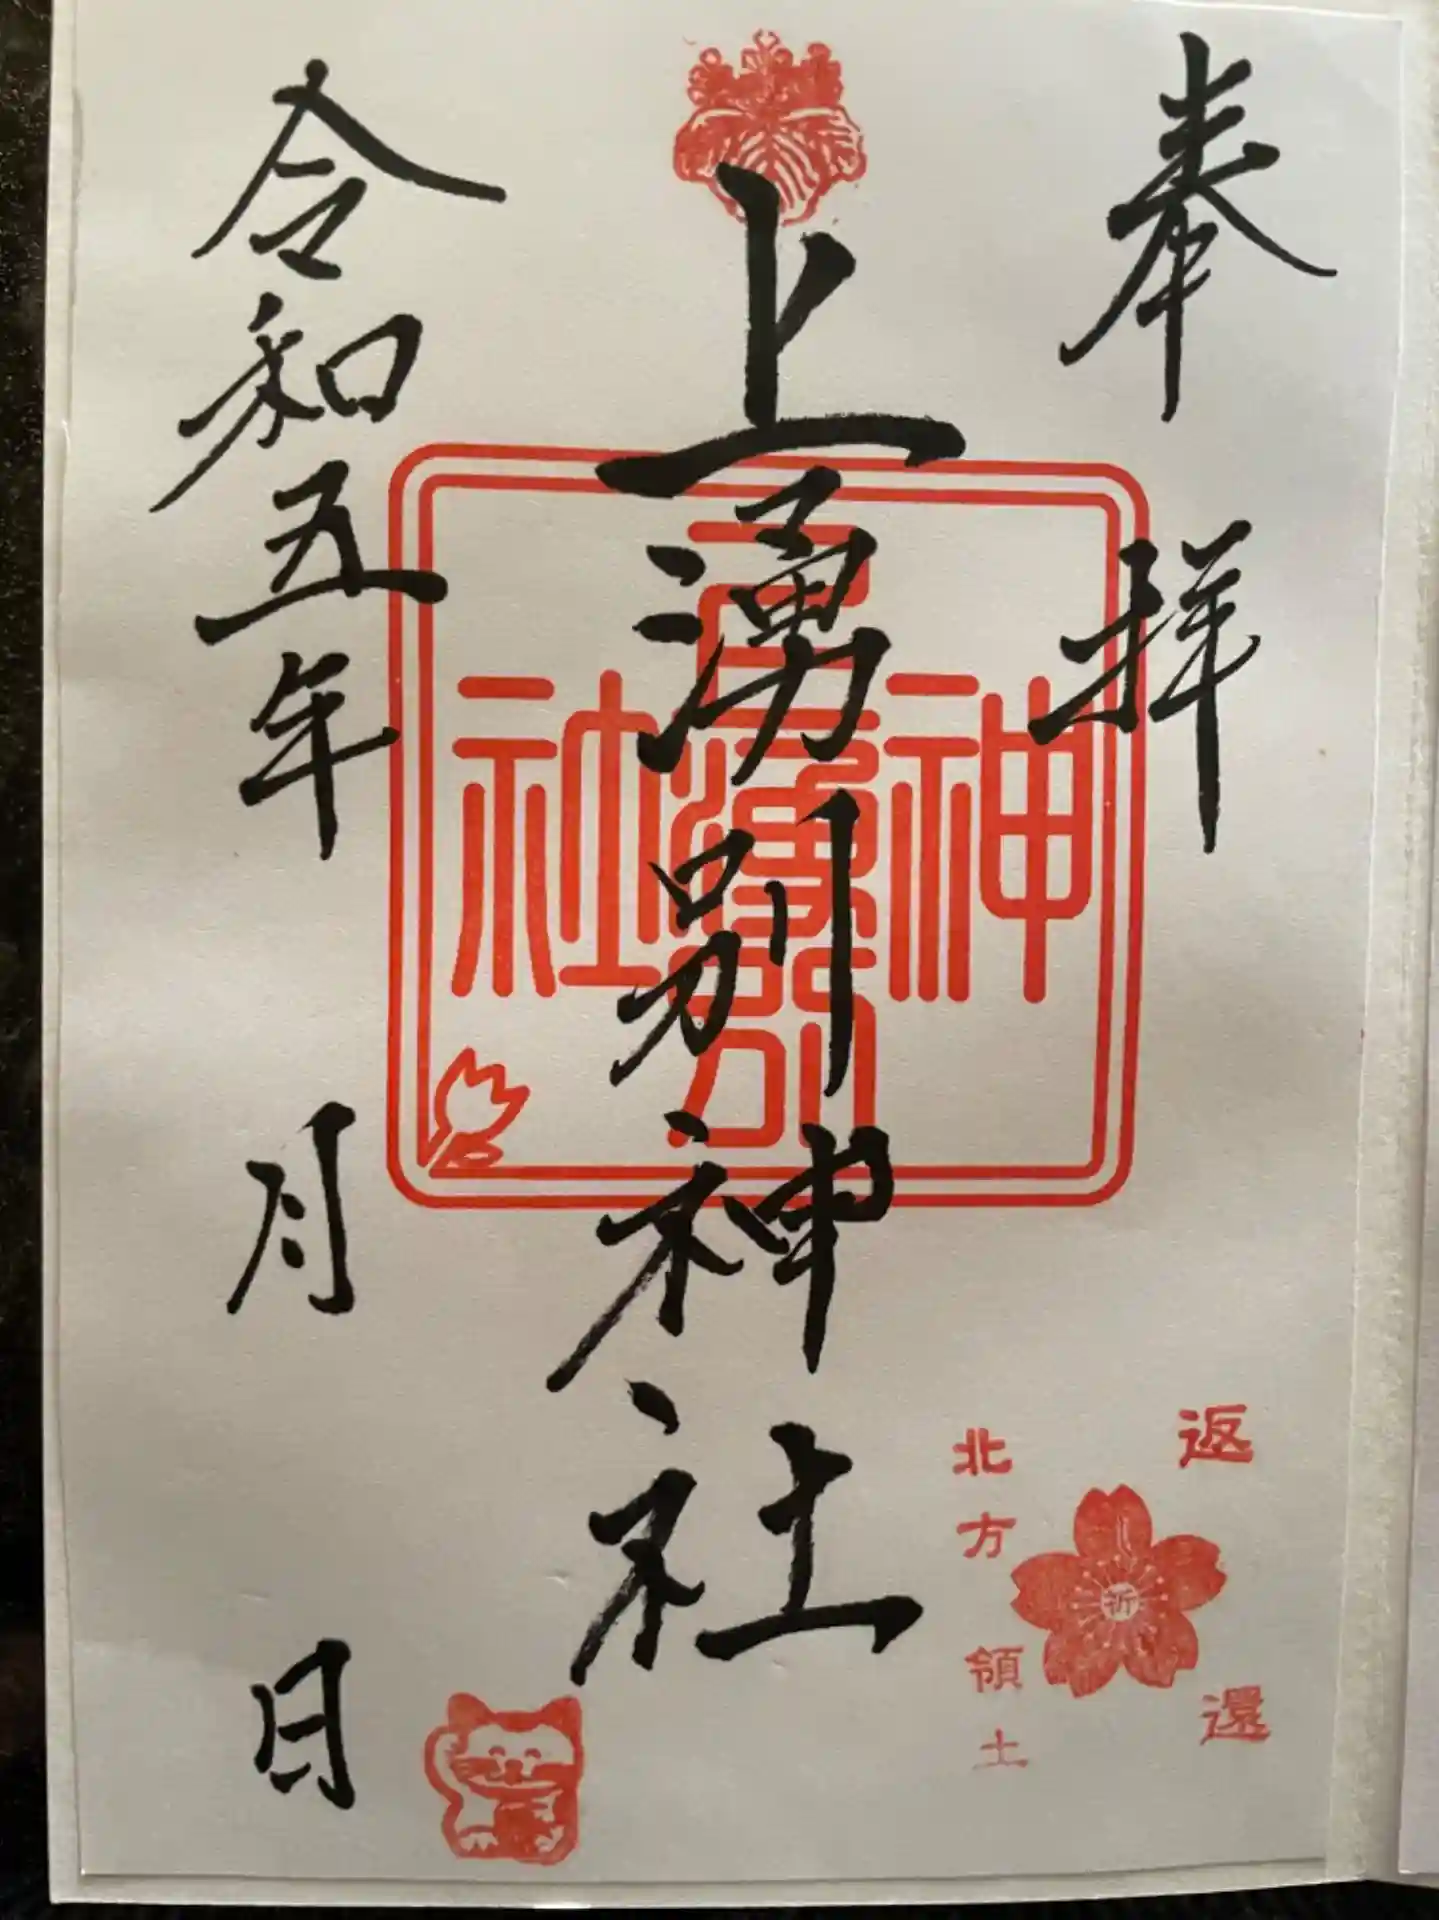 奉拝
上湧別神社
上湧別
神
社
令和五年 月 日
返還
祈
北方領土